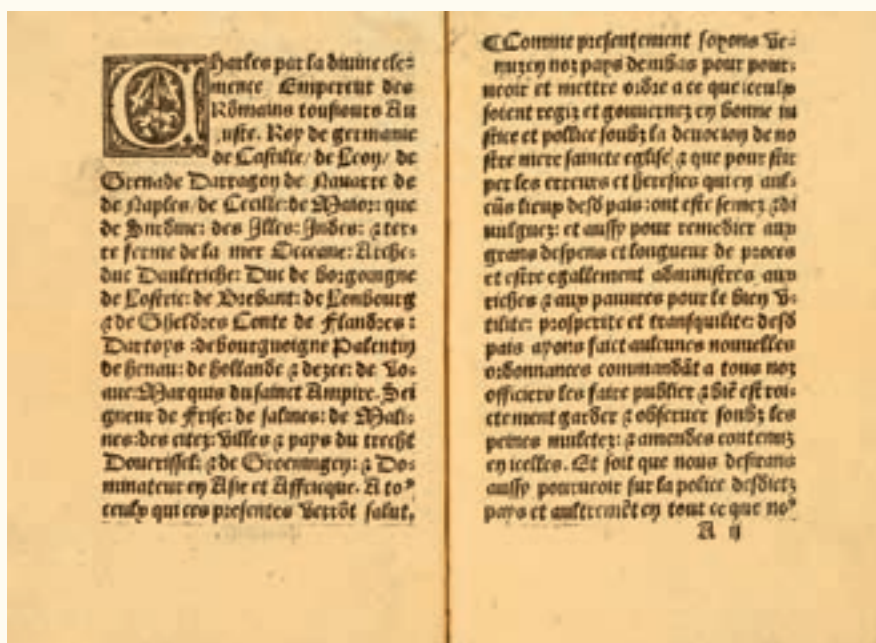 Charles par la divine cle=
mence Empereur des
Rõmains tousiours Au
uste. Roy de germanie
de Castille/ de Leon/ de
Grenade Darragon de Navarre de
de Naples/ de Cecille: de Maior: que
de Sardine: des Illes: Indes: ⁊ ter=
re ferme de la mer Occeane: Arche=
duc Daustriche: Duc de borgoingne
de Lostric: de Brebant: de Lembourg
⁊ de Gheldres Conte de Flandres:
Dartoys: de bourguoigne Palentin
de henau: de hollande ⁊ dezee: de
Marquis du sainct Ampire. Sei
gneur de Frise: de salmes: de Mali=
nes: des citez: Villes ⁊ pays du trecht
Douerissel: ⁊ de Groeningen: ⁊ Do=
minateur en Asie et Affricque. A toꝰ
ceulx qui ces presentes Verrõt salut,
¶ Comme presentement soyons Ve=
nuz en noz pays dembas pour pour=
ueoir et mettre ordre a ce que iceulx
soient regiz et gouuernez en bonne iu
stice et pollice soubz la deuocion de no
stre mere saincte eglise ⁊ que pour
per les erreurs et heresies qui en aul=
cũs lieux desd pais: ont este semez ⁊ di
uulguez: et aussy pour remedier aux
grans despens et longueur de proces
et estre egallement administres aux
riches ⁊ aux pauures pour le bien V=
tilite: prosperite et tranquilite: desd
pais ayons faict aulcunes nouuelles
ordonnances commandãt a tous noz
officiers les faire publier ⁊ biẽ estroi=
ctement garder ⁊ obseruer soubz les
peines mulctez: ⁊ amendes contenuz
en icelles. Et soit que nous desirans
aussy pourueoir sur la police desdictz
pays et aultremẽt en tout ce que noꝰ
A ij